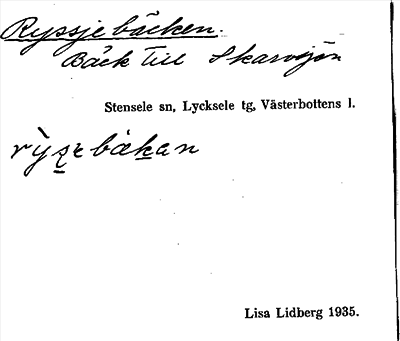 Ryssjebäcken.
Bäck till Skarvsjön
Stensele sn, Lycksele tg, Västerbottens l.
Lisa Lidberg 1935.